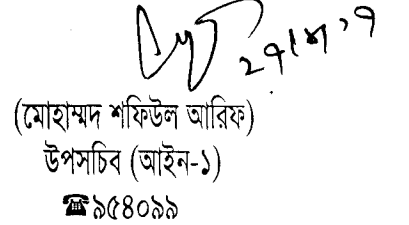 (মোহাম্মদ শফিউল আরিফ)
উপসচিব (আইন-১)
☎৯৫৪০৯৯